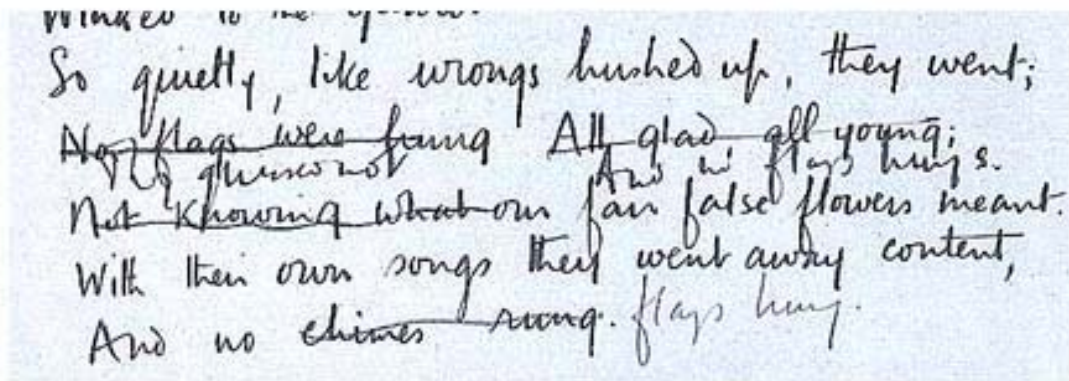 Winked to the
So quietly, like wrongs hushed up, they went;
No flags were hung All glad, all young;
guessed not And no flags hung
Not knowing what our fair false flowers meant.
With their own songs they went away content,
And no chimes rung. flags hung.